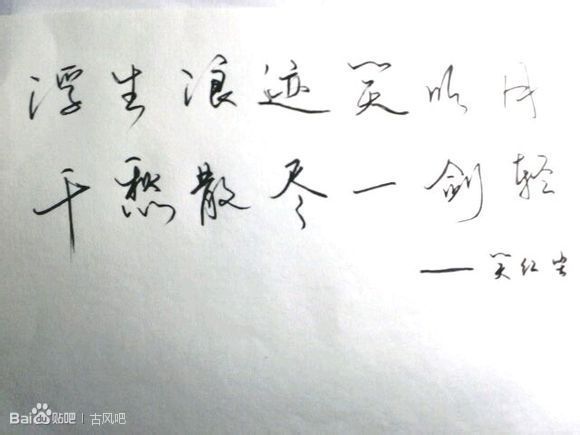 浮生浪迹笑明月
千愁散尽一剑轻
——笑红尘
Bai du 贴吧 | 古风吧